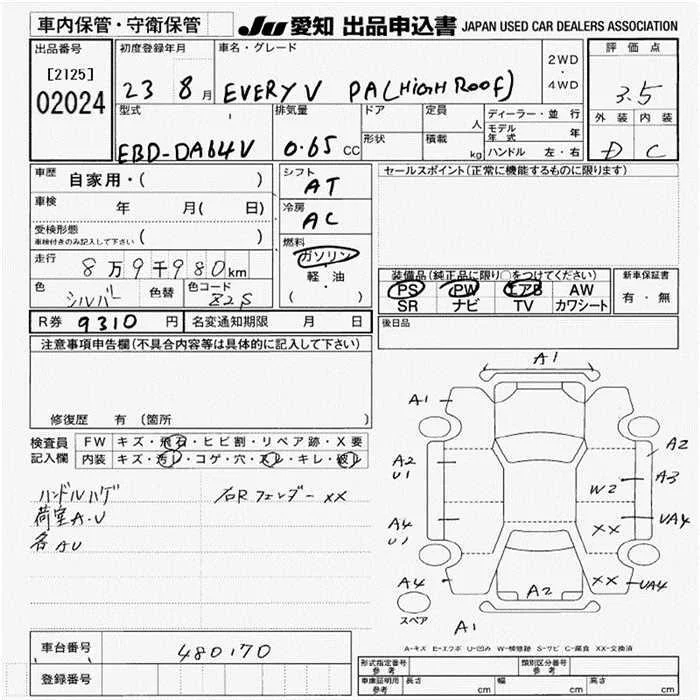 車内保管・守衛保管
JU 愛知 出品申込書 JAPAN USED CAR DEALERS ASSOCIATION
出品番号
[2125]
02024
初度登録年月
23 8月
車名・グレード
EVERY V PA(High Roof)
2WD
・
4WD
評価点
3.5
外装 内装
D C
型式
EBD-DA64V
排気量
0.65 CC
ドア
形状
定員
人
積載
kg
ディーラー・並行
モデル年式 年
ハンドル 左・右
車歴
自家用・( )
車検
年 月( 日)
受検形態
車検付きのみ記入して下さい ( )
走行
8万9千980km
色
シルバー
色替
色コード
Z2S
シフト
AT
冷房
AC
燃料
ガソリン
・
軽・油
( )
セールスポイント(正常に機能するものに限ります)
装備品(純正品に限り○をつけてください)
PS PW エアB AW
SR ナビ TV カワシート
新車保証書
有・無
R券 9310 円
名変通知期限 月 日
後日品
注意事項申告欄(不具合内容等は具体的に記入して下さい)
修復歴 有(箇所 )
検査員記入欄
FW キズ・飛石・ヒビ割・リペア跡・X要
内装 キズ・汚レ・コゲ・穴・スレ・キレ・破レ
ハンドルハゲ
荷室A.U
各AU
右Rフェンダー XX
A1
A1
A2
A2
U1
A3
W2
A4
U1
XX
UA4
A4
XX
UA4
A2
スペア
A1
A-キズ E-エクボ U-凹み W-補修跡 S-サビ C-腐食 XX-交換済
車台番号
480170
登録番号
形式指定番号
参考
類別区分番号
参考
車庫証明用
参考
長さ cm
幅 cm
高さ cm